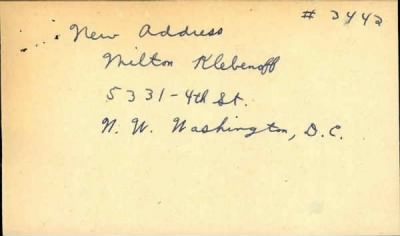 # 3443
New Address
Milton Klebenoff
5331-4th St.
N. W. Washington, D.C.